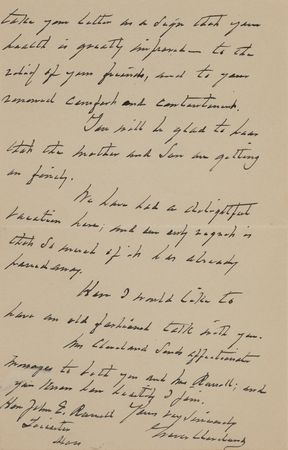 take your letter as a sign that your
health is greatly improved — to the
relief of your friends, and to your
renewed comfort and contentment.
You will be glad to hear
that the mother and son are getting
on finely.
We have had a delightful
vacation here; and our only regret is
that so much of it has already
passed away.
How I would like to
have an old fashioned talk with you.
Mrs Cleveland sends affectionate
messages to both you and Mrs Russell; and
you know how heartily I join.
Hon John E. Russell Yours very sincerely
Leicester Grover Cleveland
Mass